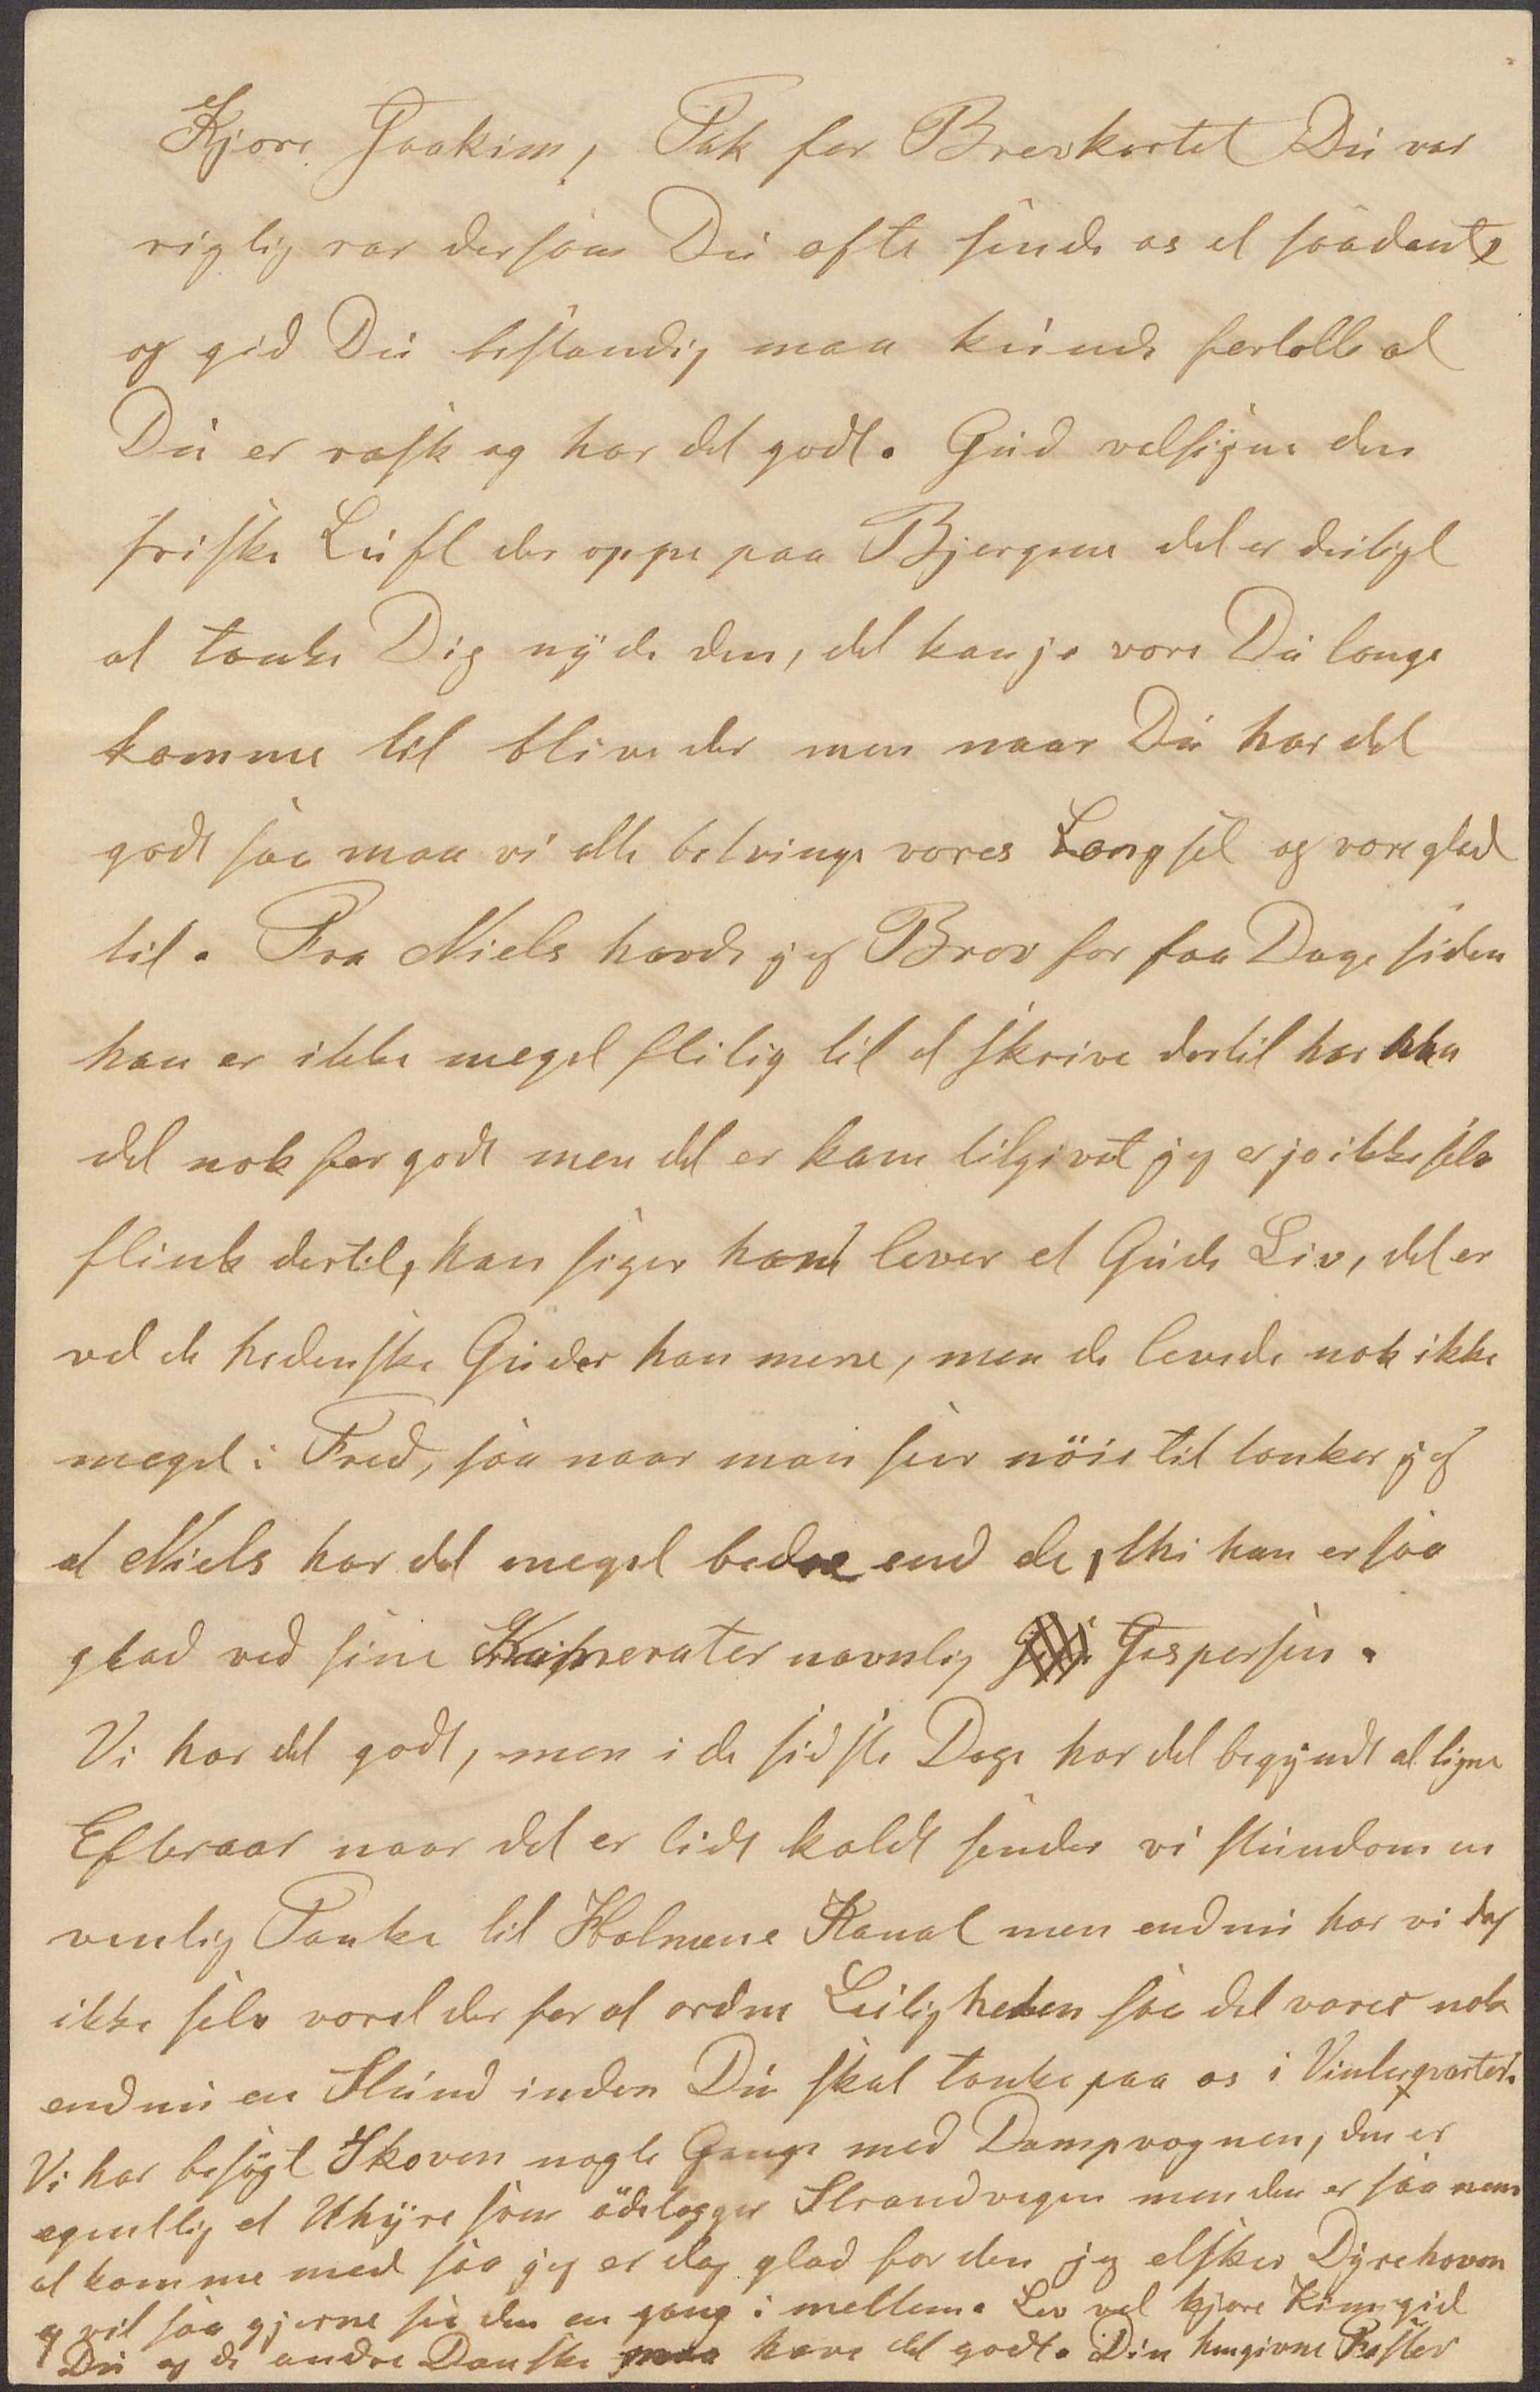 Kjære Joakim, Tak for Brevkortet Du var
rigtig rar dersom Du ofte sende os et saadant
og gid Du bestandig maa kunde fortælle at
Du er rask og har det godt. Gud velsigne den
friske Luft der oppe paa Bjergene det er deiligt
at tænke Dig nyde den, det kan jo være Du længe
komme til blive der men naar Du har det
godt saa maa vi alle betvinge vores Længsel og være glad
til. Fra Niels havde jeg Brev for faa Dage siden
han er ikke meget flitig til at skrive dertil har han
det nok for godt men det er ham tilgivet jeg er jo ikke selv
flink dertil, han siger han lever et Gude Liv, det er
vel de hedenske Guder han mene, men de levede nok ikke
meget i Fred, saa naar man seer nöie til tænker jeg
at Niels har det meget bedre end de, thi han er saa
glad ved sine Kammerater navnlig Jespersen.
Vi har det godt, men i de sidste Dage har det begyndt at ligne
Efteraar naar det er lidt koldt sender vi stundom en
venlig Tanke til Holmens Kanal men endnu har vi dog
ikke selv været der for at ordne Leiligheden saa det varer nok
endnu en Stund inden Du skal tænke paa os i Vinterqvarter.
Vi har besögt Skoven nogle Gange med Dampvognen, den er
egentlig et Uhyre som ödelægger Strandvegen men den er saa nem
at komme med saa jeg er dog glad for den jeg elsker Dyrehaven
og vil saa gjerne see den en gang i mellem. Lev vel kjære Kim gid
Du og de andre Danske maa have det godt. Din hengivne Faster